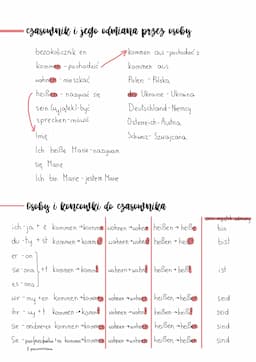 czasownik i jego odmiana przez osoby
bezokolicznik en
kommen - pochodzić
wohnen - mieszkać
heißen - nazywać się
sein (wyjątek) - być
sprechen - mówić
Imię
Ich heiße Marie - nazywam
się Marie
Ich bin Marie - jestem Marie
kommen aus - pochodzić z
kommen aus
Polen - Polska
die Ukraine - Ukraina
Deutschland - Niemcy
Österreich - Austria
Schweiz - Szwajcaria
Osoby i końcówki do czasownika
ich - ja + e kommen → komme wohnen → wohne heißen → heiße bin
du - ty + st kommen → wohnen → heißen → bist
er - on
sie - ona + t kommen → wohnen → heißen → ist
es - ono
wir - my + en kommen → wohnen → heißen → sind
ihr - wy + t kommen → wohnen → heißen → seid
sie - oni/one + en kommen → wohnen → heißen → sind
Sie - + en kommen → wohnen → heißen → sind